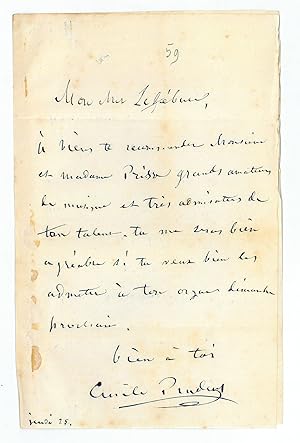 59
Mon cher Lefébure,
je viens te recommander Monsieur
et madame Prisse grands amateurs
de musique et très admirateurs de
ton talent. tu me seras bien
agréable si tu veux bien les
admettre à ton orgue dimanche
prochain.
bien à toi
Emile Prudent
jeudi 25.